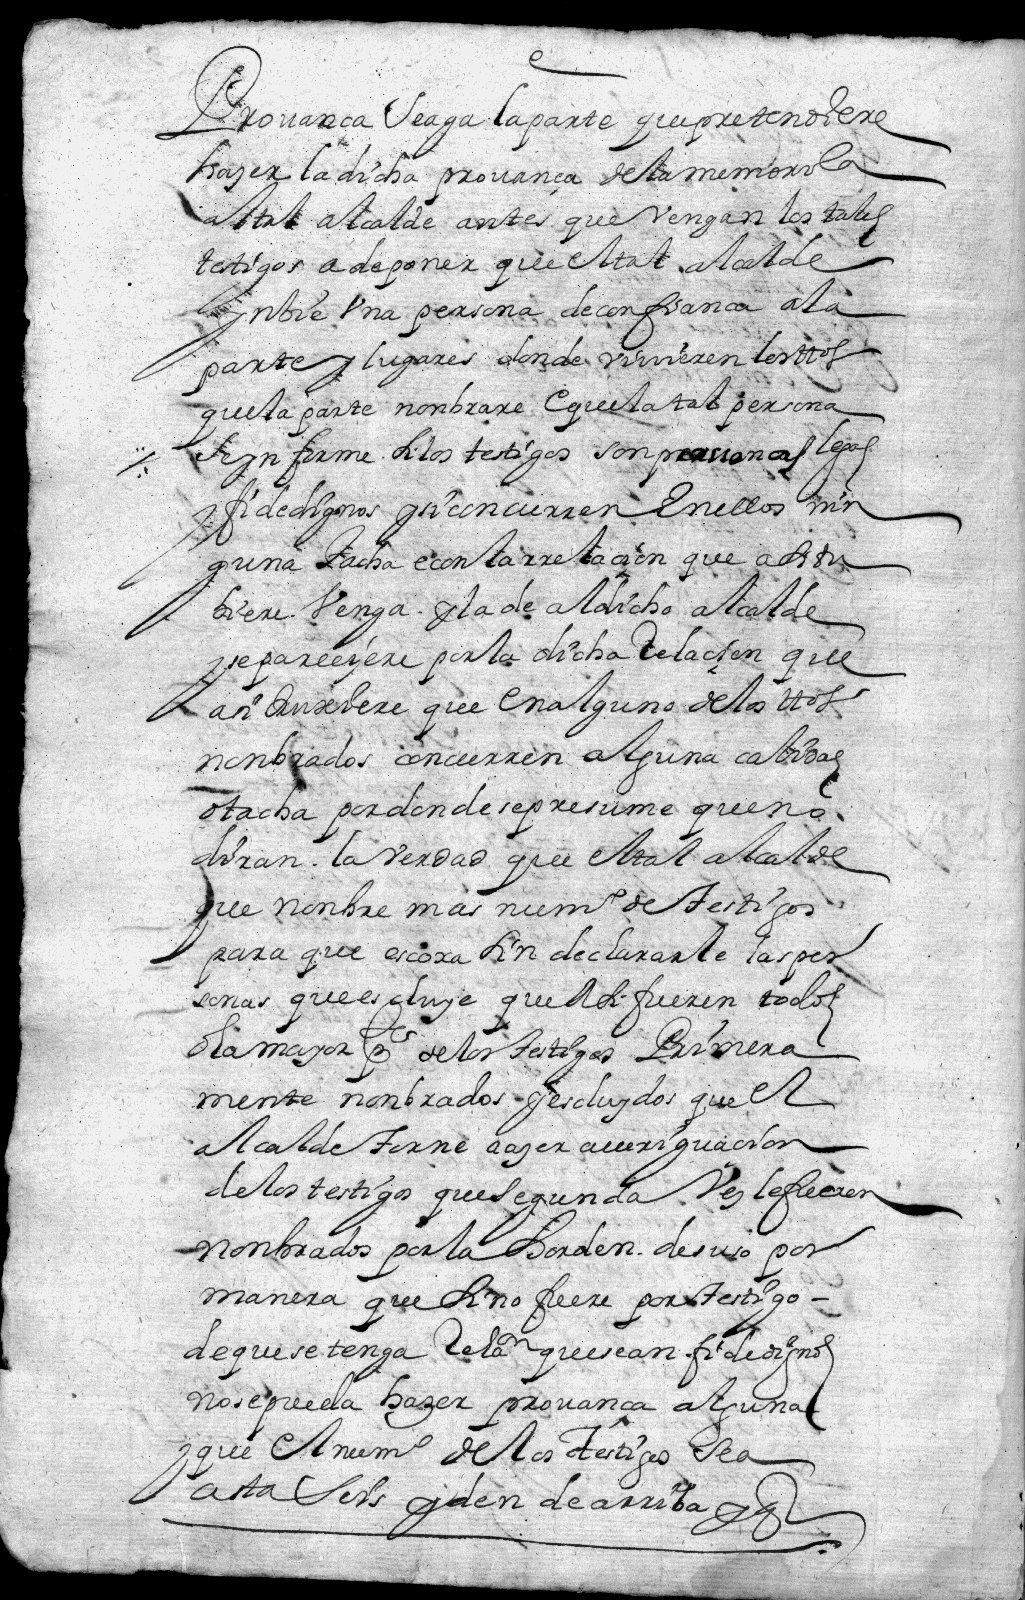 Prouança seaga la parte que pretendiere
hazer la dicha prouança de la memoria
al tal alcalde antes que vengan los tales
testigos a deponer que el tal alcalde
ynbie vna persona de confiança a la
parte y lugares donde viuieren los ttos
que la parte nonbrare e que la tal persona
se ynforme si los testigos son personas legas
y fidedignos y si concurren en ellos nin
guna tacha e con la rrelacion que asi tu
biere venga y la de al dicho alcalde
y se pareciere por la dicha relacion que
asi truxere que en alguno de los ttos
nonbrados concurren alguna calidad
o tacha por donde se presume que no
diran la verdad que el tal alcalde
que nonbre mas numo de testigos
para que escoxa sin declararle las per
sonas que escluye que si fueren todos
o la mayor pte de los testigos primera
mente nonbrados y escluydos que el
alcalde torne a azer aueriguacion
de los testigos que segunda vez le fueren
nonbrados por la horden de suso por
manera que si no fuere por testigo
de que se tenga relaon que sean fidedignos
no se pueda hazer prouança alguna
y que el numo de los testigos sea
asta seis y den de arriba